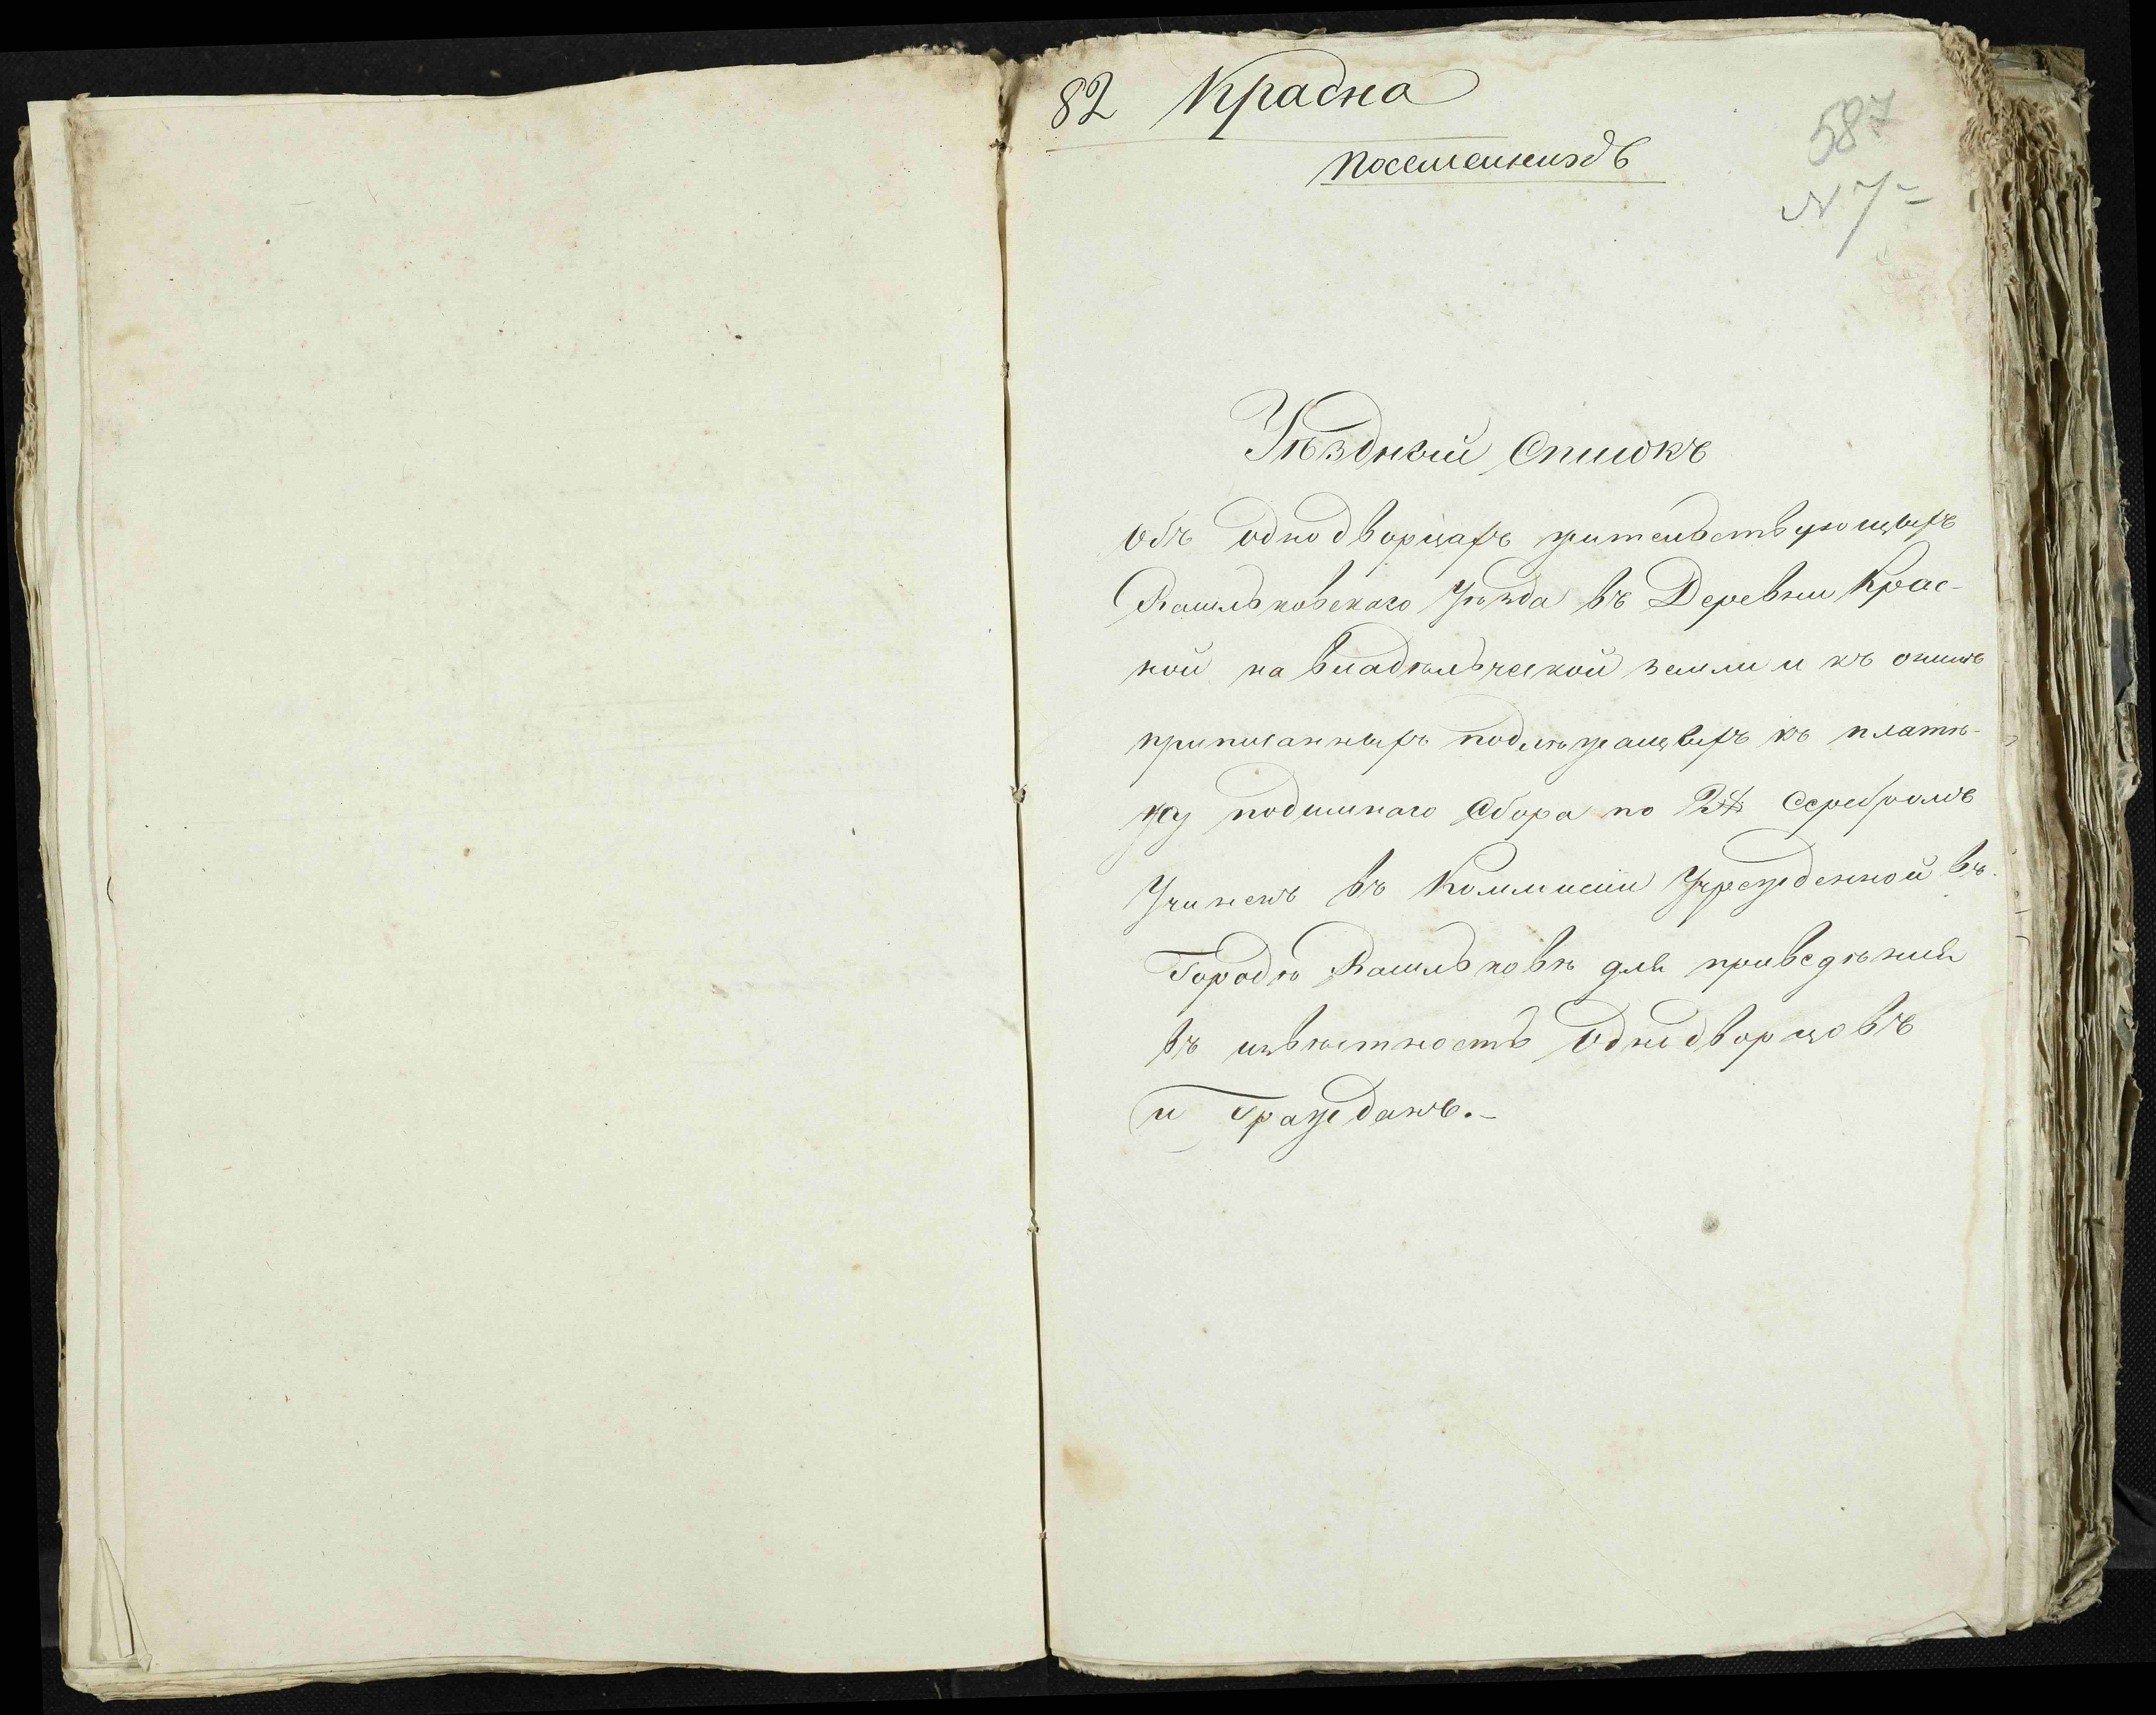 82 Красна
587
N 7
Уѣздный Списокъ
Объ однодворцахъ жительствующихъ
Васильковскаго Уѣзда въ Деревни Крас-
ной на владѣльческой земли и къ оной
приписанныхъ подлежащихъ къ плате-
жу подымнаго Сбора по Серебромъ
Учиненъ въ Коммисіи Учрежденной въ
Городѣ Васильковѣ для приведѣнія
въ извѣстность Однодворцовъ
и Гражданъ.-